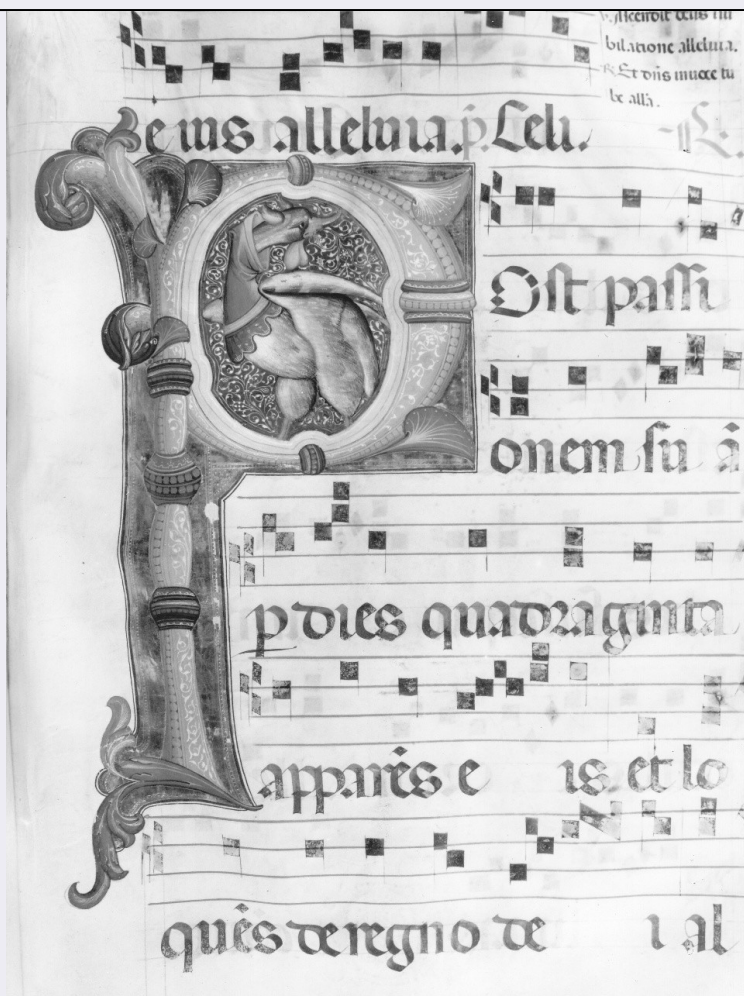 bilatione alleluia.
Et dns in uoce tu
be alla.
e ius alleluia. p. Celi.
Ost passi
onem su a
p dies quadraginta
apparēs e is. et lo
quēs de regno de i al